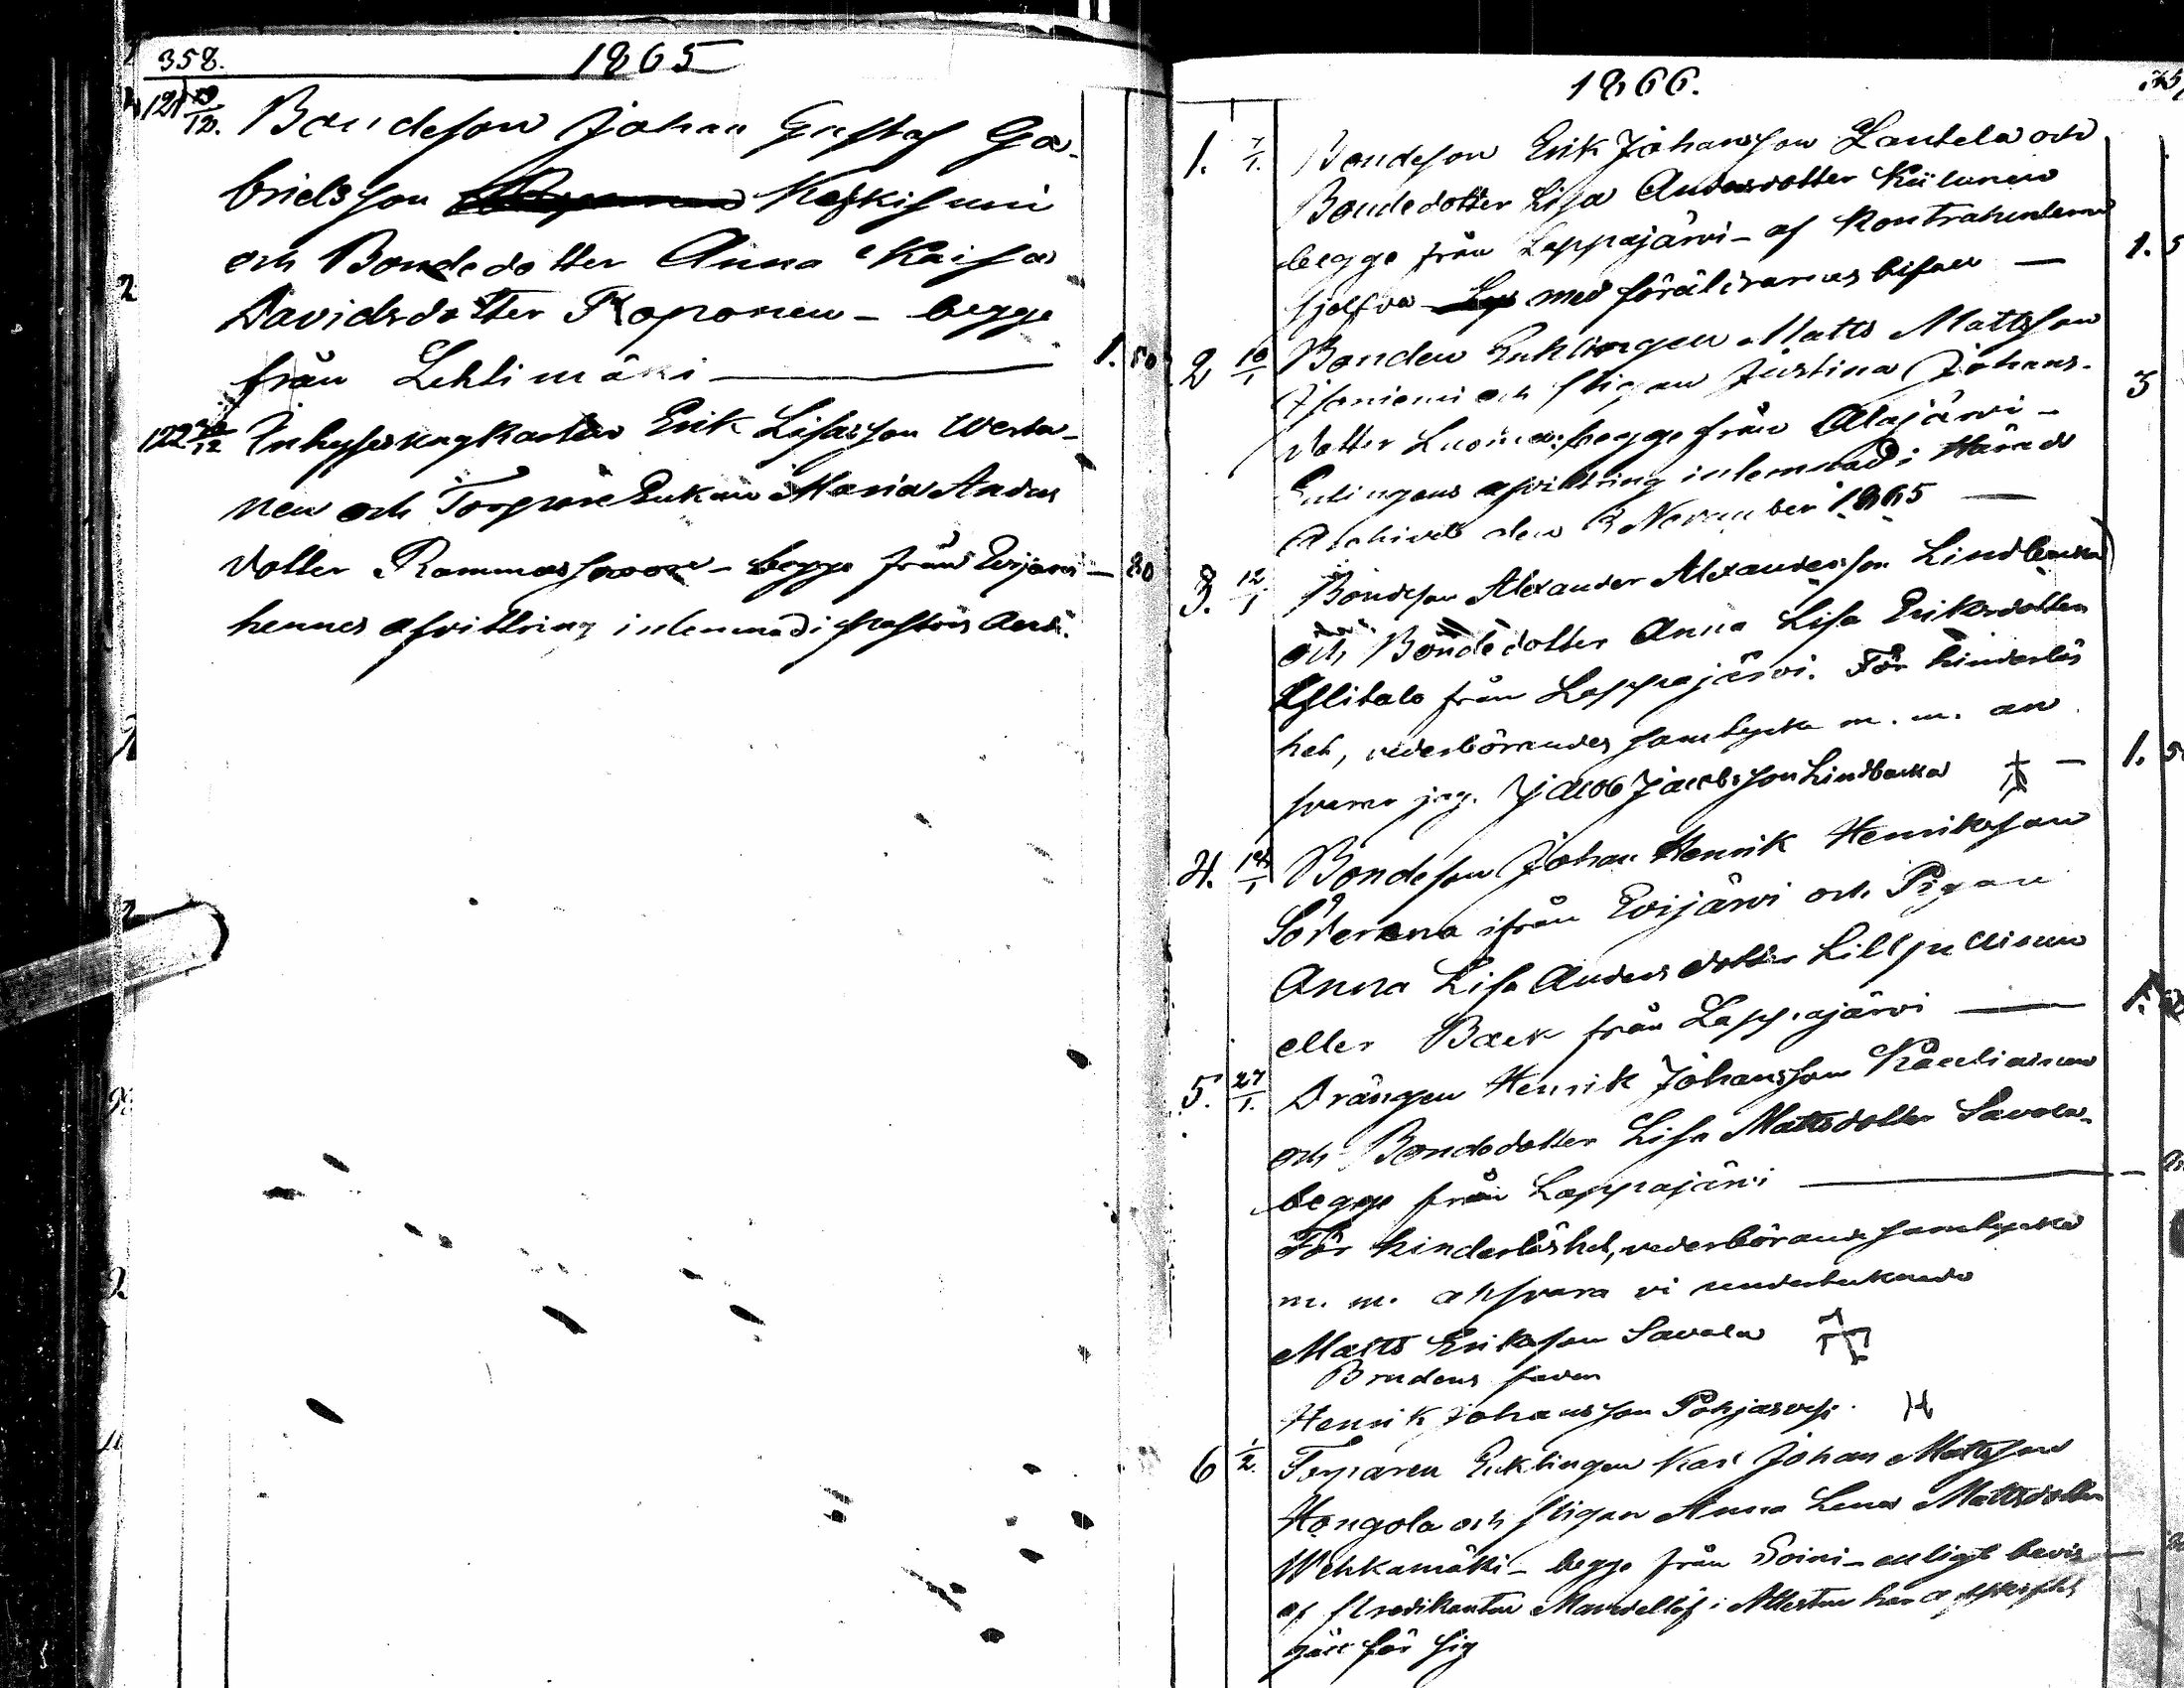 358.
1865
121) 29/12. Bondeson Johan Gustaf Ga-
brielsson Keskisuni
och Bondedotter Anna Kaisa
Davidsdotter Koponen - begge
från Lehtimäki — 1. 50
122 Erik Lisasson Werta-
nen och Torpare Enkan Maria Anders
dotter - begge från Evijärvi — 80
hennes afvittring inlemnad i
1866.
1. 7/1. Bondeson Erik Johansson Lantela och
Bondedotter Lisa Andersdotter Kiilunen
begge från Lappajärvi - af Kontrahenterna
sjelfva med föräldrarnes bifall — 1. 5
2 10/1 Bonden Enklingen Matts Mattsson
Isaniemi och Pigan Justina Johans- 3
dotter Luoma, begge från Alajärvi -
Enklingens afvittring inlemnad i Härads
Archivet den November 1865 —
3. 12/1 Bondeson Alexander Alexandersson Lindbacka
och Bondedotter Anna Lisa Eriksdotter
från Lappajärvi. För hinderlös
het, vederbörandes samtycke m. m. an
svarar jag. Jacob Jacobsson Lindbacka — 1. 5
4. Bondeson Johan Henrik Henriksson
Söderena ifrån Evijärvi och Pigan
Anna Lisa Andersdotter
eller Back från Lappajärvi —
5. 27/1. Drängen Henrik Johansson
och Bondedotter Lisa Mattsdotter Savola-
begge från Lappajärvi —
För hinderlöshet, vederbörandes samtycke
m. m. ansvara vi undertecknade
Matts Eriksson Savola
Brudens fader
Henrik Johansson
6 1/2. Torparen Enklingen Karl Johan Mattsson
Hongola och Pigan Anna Lena Mattsdotter
Wehkamäki - begge från Soini - enligt bevis —
af Predikanten i Alestaro har
för sig